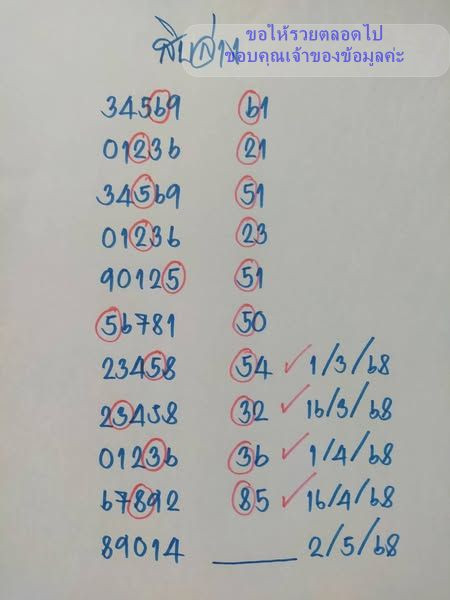 ขอให้รวยตลอดไป
ขอบคุณเจ้าของข้อมูลค่ะ
สิบล่าง
34569 61
01236 21
34569 51
01236 23
90125 51
56781 50
23458 54 ✓ 1/3/68
23458 32 ✓ 16/3/68
01236 36 ✓ 1/4/68
67892 85 ✓ 16/4/68
89014 ____ 2/5/68